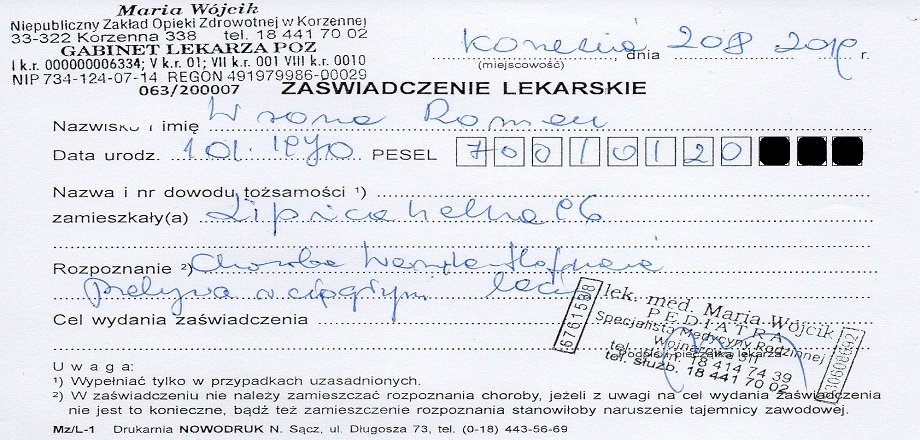 Maria Wójcik
Niepubliczny Zakład Opieki Zdrowotnej w Korzennej
33-322 Korzenna 338 tel. 18 441 70 02
GABINET LEKARZA POZ
I k.r. 000000006334; V k.r. 01; VII k.r. 001 VIII k.r. 0010
NIP 734-124-07-14 REGON 491979986-00029
063/200007
dnia r.
(miejscowość)
ZAŚWIADCZENIE LEKARSKIE
Nazwisko i imię Wrona Roman
Data urodz. 1 01. 1970 PESEL 70010120
Nazwa i nr dowodu tożsamości ¹)
zamieszkały(a) Lipnica Wielka
Rozpoznanie ²) Choroba
w ciągłym
Cel wydania zaświadczenia
lek. med. Maria Wójcik
PEDIATRA
Specjalista Medycyny Rodzinnej
Wojnarowa
Podpis i pieczątka lekarza
18 414 74 39
tel. służb. 18 441 70 02
Uwaga:
¹) Wypełniać tylko w przypadkach uzasadnionych.
²) W zaświadczeniu nie należy zamieszczać rozpoznania choroby, jeżeli z uwagi na cel wydania zaświadczenia
nie jest to konieczne, bądź też zamieszczenie rozpoznania stanowiłoby naruszenie tajemnicy zawodowej.
Mz/L-1 Drukarnia NOWODRUK N. Sącz, ul. Długosza 73, tel. (0-18) 443-56-69